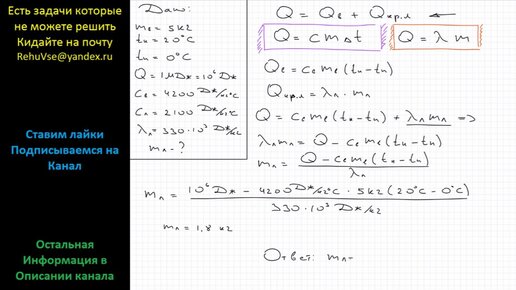 Есть задачи которые
не можете решить
Кидайте на почту
RehuVse@yandex.ru
Ставим лайки
Подписываемся на
Канал
Остальная
Информация в
Описании канала
Дано:
mв = 5 кг
tн = 20°C
tп = 0°C
Q = 1 МДж = 10⁶ Дж
cв = 4200 Дж/кг°C
cл = 2100 Дж/кг°C
λл = 330·10³ Дж/кг
mл - ?
Q = Qв + Qкрл
Q = cmΔt
Q = λm
Qв = cв mв (tн - tп)
Qкрл = λл · mл
Q = cв mв (tн - tп) + λл mл =>
λл mл = Q - cв mв (tн - tп)
mл = Q - cв mв (tн - tп) / λл
mл = 10⁶ Дж - 4200 Дж/кг°C · 5 кг (20°C - 0°C) / 330·10³ Дж/кг
mл = 1,8 кг
Ответ: mл =